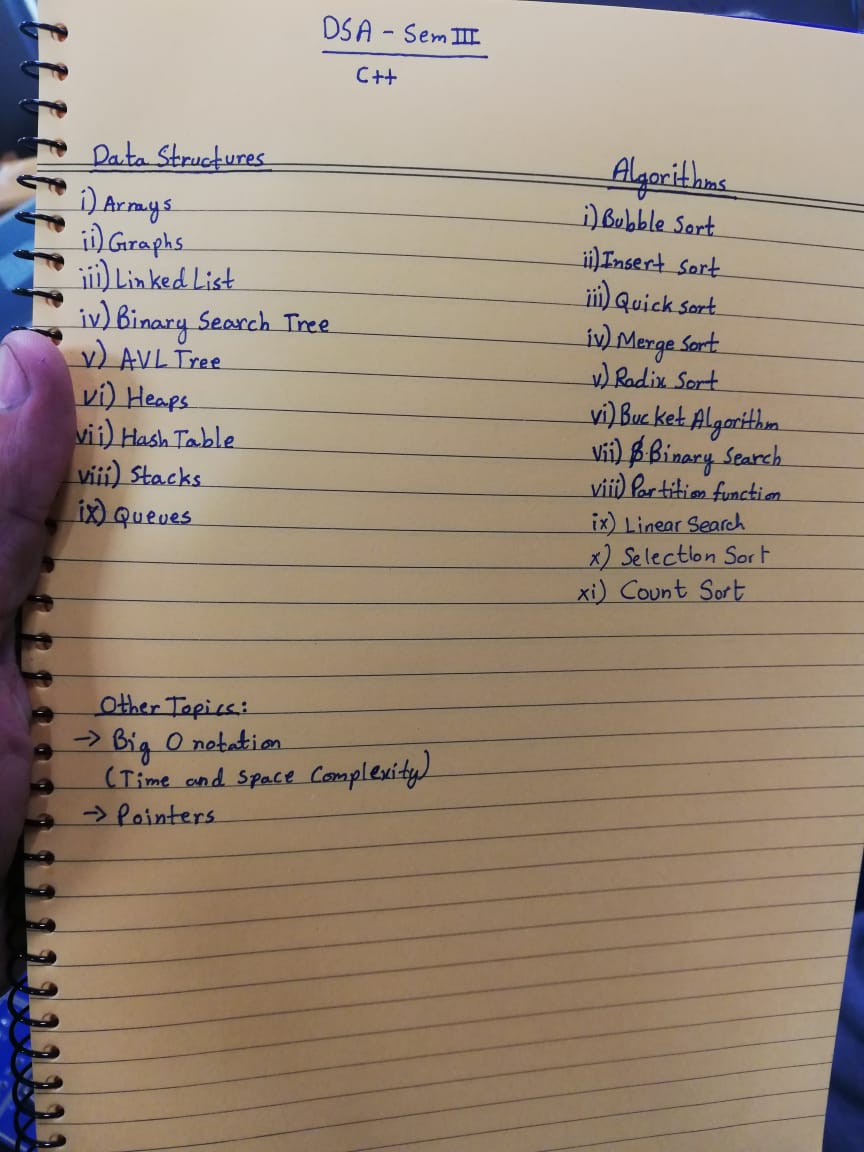 DSA - Sem III
C++
Data Structures
i) Arrays
ii) Graphs
iii) Linked List
iv) Binary Search Tree
v) AVL Tree
vi) Heaps
vii) Hash Table
viii) Stacks
ix) Queues
Algorithms
i) Bubble Sort
ii) Insert sort
iii) Quick sort
iv) Merge Sort
v) Radix Sort
vi) Bucket Algorithm
vii) Binary Search
viii) Partition function
ix) Linear Search
x) Selection Sort
xi) Count Sort
Other Topics:
→ Big O notation
(Time and space Complexity)
→ Pointers